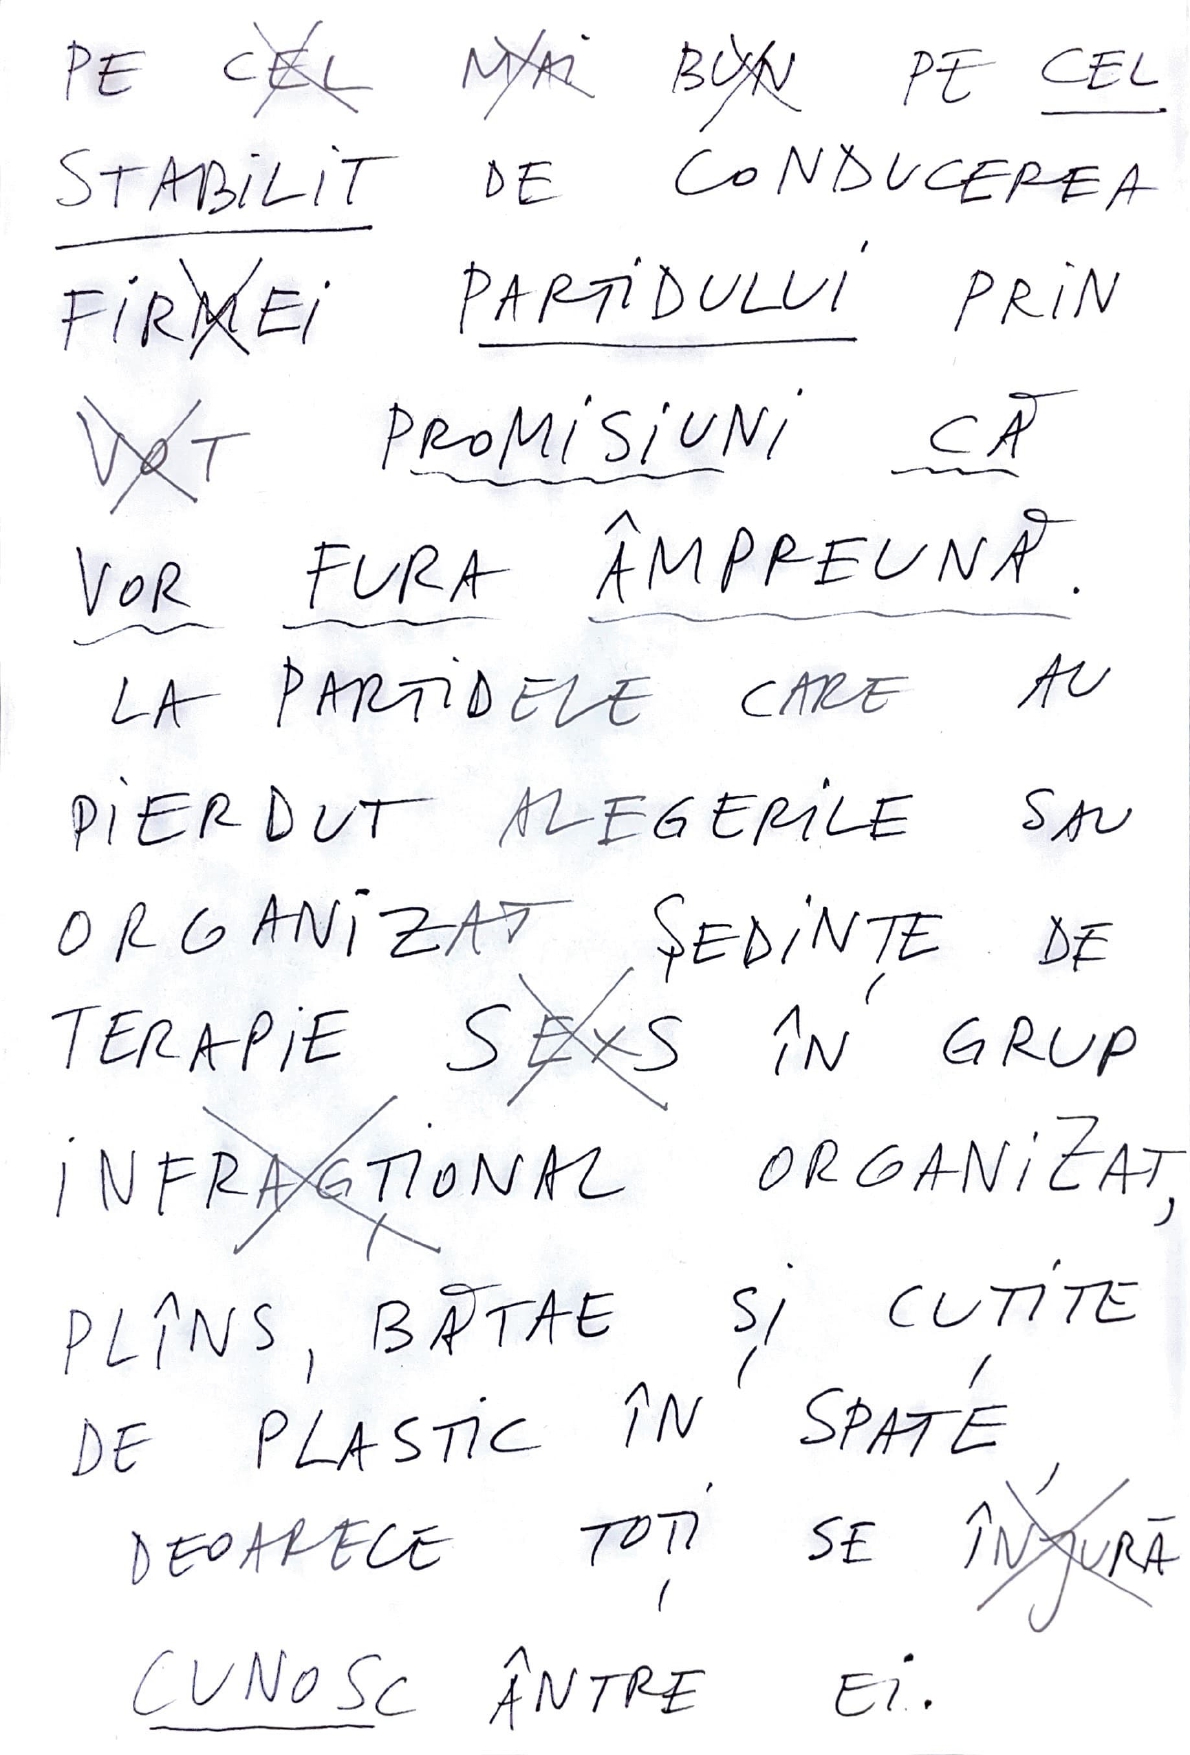 PE CEL MAI BUN PE CEL
STABILIT DE CONDUCEREA
FIRMEI PARTIDULUI PRIN
VOT PROMISIUNI CĂ
VOR FURA ÂMPREUNĂ.
LA PARTIDELE CARE AU
PIERDUT ALEGERILE SAU
ORGANIZAT ȘEDINȚE DE
TERAPIE SEXS ÎN GRUP
INFRACȚIONAL ORGANIZAT,
PLÎNS, BĂTAE ȘI CUȚITE
DE PLASTIC ÎN SPATE,
DEOARECE TOȚI SE ÎNJURĂ
CUNOSC ÂNTRE EI.